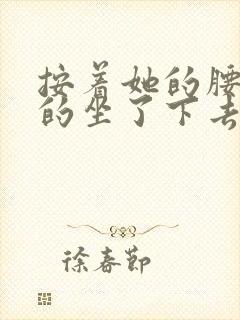 按着她的腰
的坐了下去
徐春节